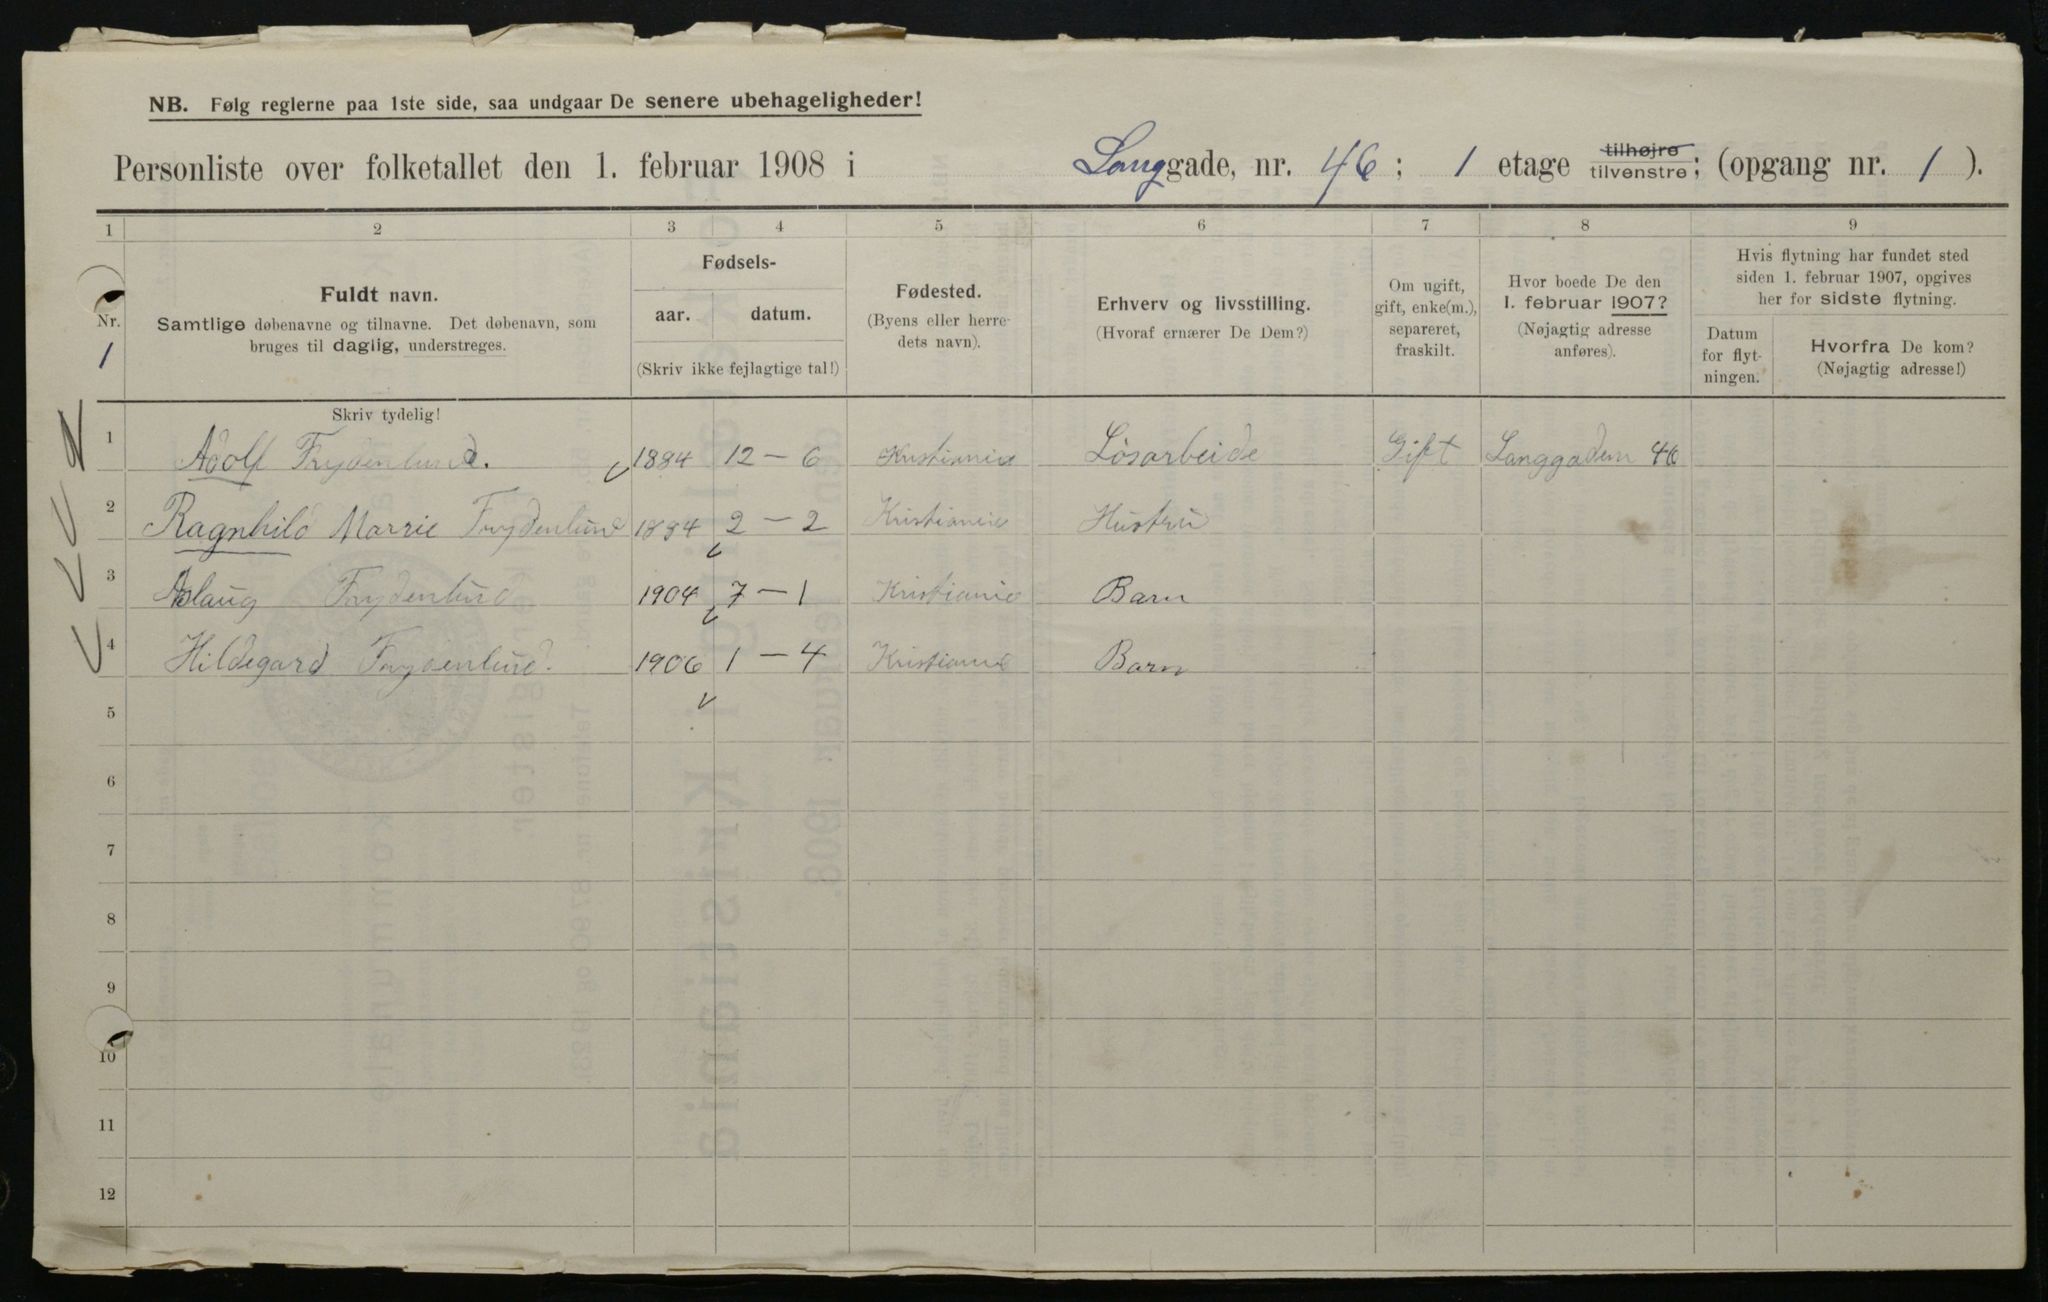 NB. Følg reglerne paa 1ste side, saa undgaar De senere ubehageligheder!
Personliste over folketallet den 1. februar 1908 i Langgade, nr. 46; 1 etage tilhøjre tilvenstre; (opgang nr. 1).
1 2 3 4 5 6 7 8 9
Nr. 1
Fuldt navn.
Samtlige døbenavne og tilnavne. Det døbenavn, som
bruges til daglig, understreges.
Fødsels-
aar. datum.
(Skriv ikke fejlagtige tal!)
Fødested.
(Byens eller herre-
dets navn).
Erhverv og livsstilling.
(Hvoraf ernærer De Dem?)
Om ugift,
gift, enke(m.),
separeret,
fraskilt.
Hvor boede De den
1. februar 1907?
(Nøjagtig adresse
anføres).
Hvis flytning har fundet sted
siden 1. februar 1907, opgives
her for sidste flytning.
Datum
for flyt-
ningen.
Hvorfra De kom?
(Nøjagtig adresse!)
Skriv tydelig!
1 Adolf Frydenlund. 1884 12 – 6 Kristiania Løsarbeide Gift Langgaden 46
2 Ragnhild Marrie Frydenlund 1884 2 – 2 Kristiania Hustru
3 Aslaug Frydenlund 1904 7 – 1 Kristiania Barn
4 Hildegard Frydenlund. 1906 1 – 4 Kristiania Barn
5
6
7
8
9
10
11
12